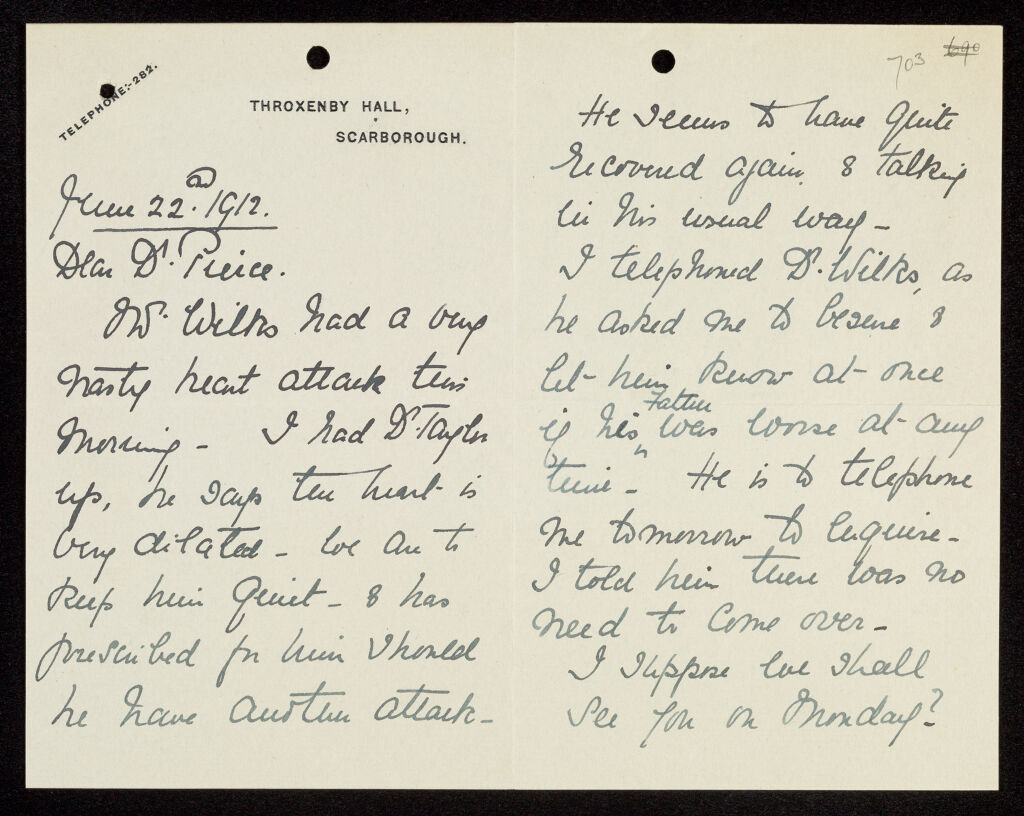 TELEPHONE:-282.
THROXENBY HALL,
SCARBOROUGH.
June 22nd. 1912.
Dear Dr. Pierce.
Mr. Wilks had a very
nasty heart attack this
morning - I had Dr Taylor
up, he says the heart is
very dilated - we are to
keep him quiet - & has
prescribed for him should
he have another attack -
703 690
He seems to have quite
recovered again, & talking
in his usual way -
I telephoned Dr. Wilks, as
he asked me to &
let him know at once
if his Father was worse at any
time - He is to telephone
me tomorrow to enquire -
I told him there was no
need to come over -
I suppose we shall
see you on Monday?